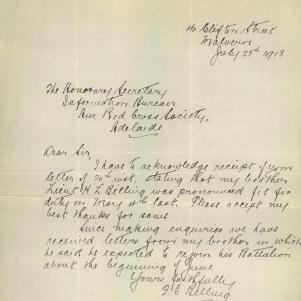 40 Clifton Street
Malvern
July 28th 1918
The Honorary Secretary
Information Bureau
Aus Red Cross Society,
Adelaide
Dear Sir,
I have to acknowledge receipt of your
letter of 20th inst, stating that my brother
Lieut H. L. Belling was pronounced fit for
duty on May 4th last. Please accept my
best thanks for same.
Since making enquiries we have
received letters from my brother in which
he said he expected to rejoin his Battalion
about the beginning of June
Yours faithfully
Belling